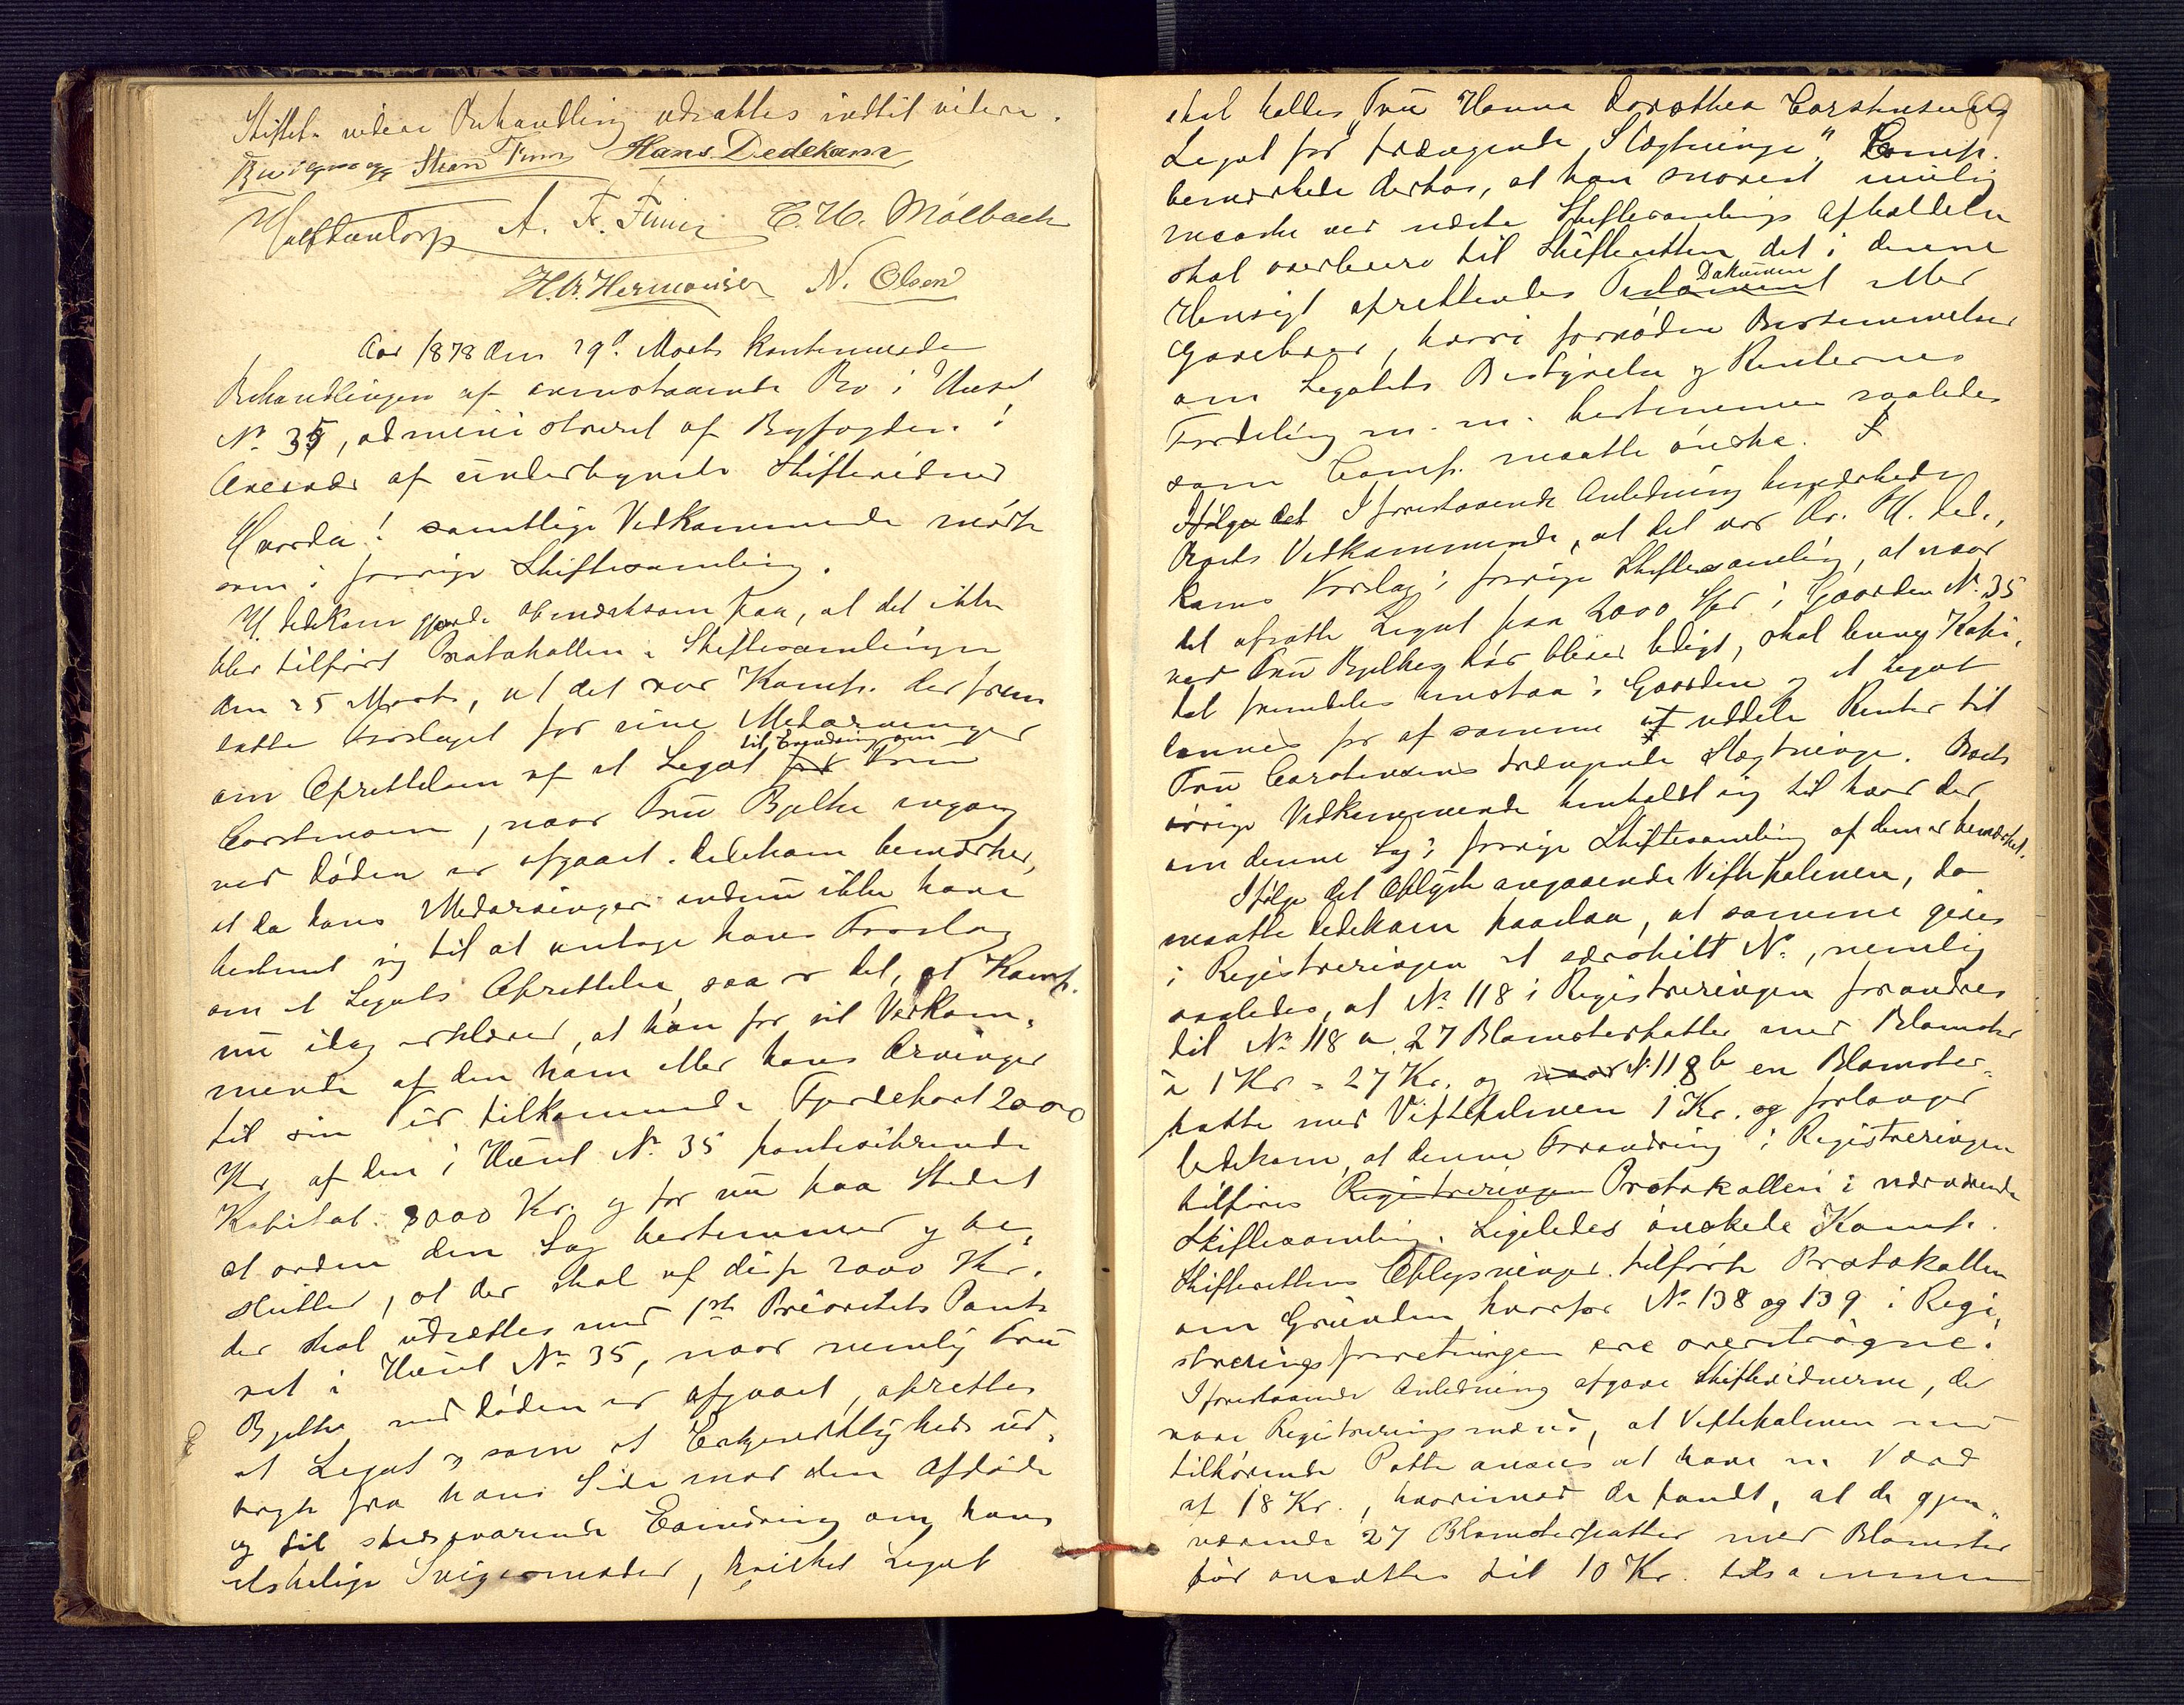 Skiftets videre Behandling udsattes indtil videre.
Hans Dedekam
A. F. Finne C. H. Mölbach
H. A. Hermansen N. Olsen
Aar 1878 den 29d. Marts kontinuerede
Behandlingen af ovennævnte Bo i Huset
No 35, administreret af Byfogden i
Overvær af undertegnede Skiftevidner
Hvorda! samtlige Vedkommende mødte
som i forrige Skiftesamling.
H. Dedekam gjorde opmærksom paa, at det ikke
blev tilført Protokollen i Skiftesamlingen
den 25 Marts, at det var Komp. der frem
satte Forslaget for sine Medarvinger
til Erindring om
om Oprettelsen af et Legat for Fru
Carstensen, naar Fru Bjelke engang
ved Døden er afgaaet. Dedekam bemærker,
at da hans Medarvinger endnu ikke have
bestemt sig til at antage hans Forslag
om et Legats Oprettelse, saa er det, at Komp.
nu idag erklærer, at han for sit Vedkom-
mende af den ham eller hans Arvinger
til sin Tid tilkommende Fjerdepart 2000
Kr. af den i Huset No 35 pantesikrende
Kapital 8000 Kr. og for nu paa Stedet
at ordne den Sag bestemmer og be-
slutter, at der skal af disse 2000 Kr.
der skal udsættes mod 1ste Prioritets Pante
ret i Huset No 35, naar nemlig Fru
Bjelke ved Døden er afgaaet, oprettes
et Legat som et Erkjendtligheds ud-
tryk fra hans Side mod den Afdøde
og til stedsvarende Erindring om hans
elskelige Svigermoder, hvilket Legat
89
skal kaldes "Fru Hanna Dorothea Carstensens
Legat for trængende Slægtninge". Comp.
bemærkede derhos, at han snarest mulig
maaske ved næste Skiftesamlings Afholdelse
skal overlevere til Skifteretten det i denne
Dokument
Hensigt oprettendes Testament eller
Gavebrev, hvori fornødne Bestemmelser
om Legatets Bestyrelse og Renternes
Fordeling m. m. bestemmes saaledes
som Comp. maatte ønske.
Ifølge det I forestaaende Anledning bemærkede
Boets Vedkommende, at det var Hr. H. Dede-
kams Forslag i forrige Skiftesamling, at naar
det afsatte Legat paa 2000 Spd i Gaarden No 35
ved Fru Bjelkes Død bliver ledigt, skal denne Kapi-
tal fremdeles henstaa i Gaarden og et Legat
dannes for af samme at uddele Renter til
Fru Carstensens trængende Slægtninge. Boets
øvrige Vedkommende henholdt sig til hvad der
om denne Sag i forrige Skiftesamling af dem er bemærket.
Ifølge det Oplyste angaaende Viftepalmen, da
maatte Dedekam paastaa, at samme gives
i Registreringen et særskilt No, nemlig
saaledes, at No 118 i Registreringen forandres
til No 118 a 27 Blomsterpotter med Blomster
à 1 Kr = 27 Kr. og No 118 b en Blomster-
potte med Viftepalmen 1 Kr. og forlanger
Dedekam, at denne Forandring i Registreringen
tilføres Registreringen Protokollen i nærværende
Skiftesamling. Ligeledes ønskede Komp.
Skifterettens Oplysninger tilførte Protokollen
om Grunden hvorfor No 138 og 139 i Regi-
streringsforretningen ere overstrøgne.
I forestaaende Anledning afgave Skiftevidnerne, der
vare Registreringsmænd, at Viftepalmen med
tilhørende Potte ansees at have en Værd
af 18 Kr., hvorimod de fandt, at de gjen-
værende 27 Blomsterpotter med Blomster
bør ansættes til 10 Kr. tilsammen